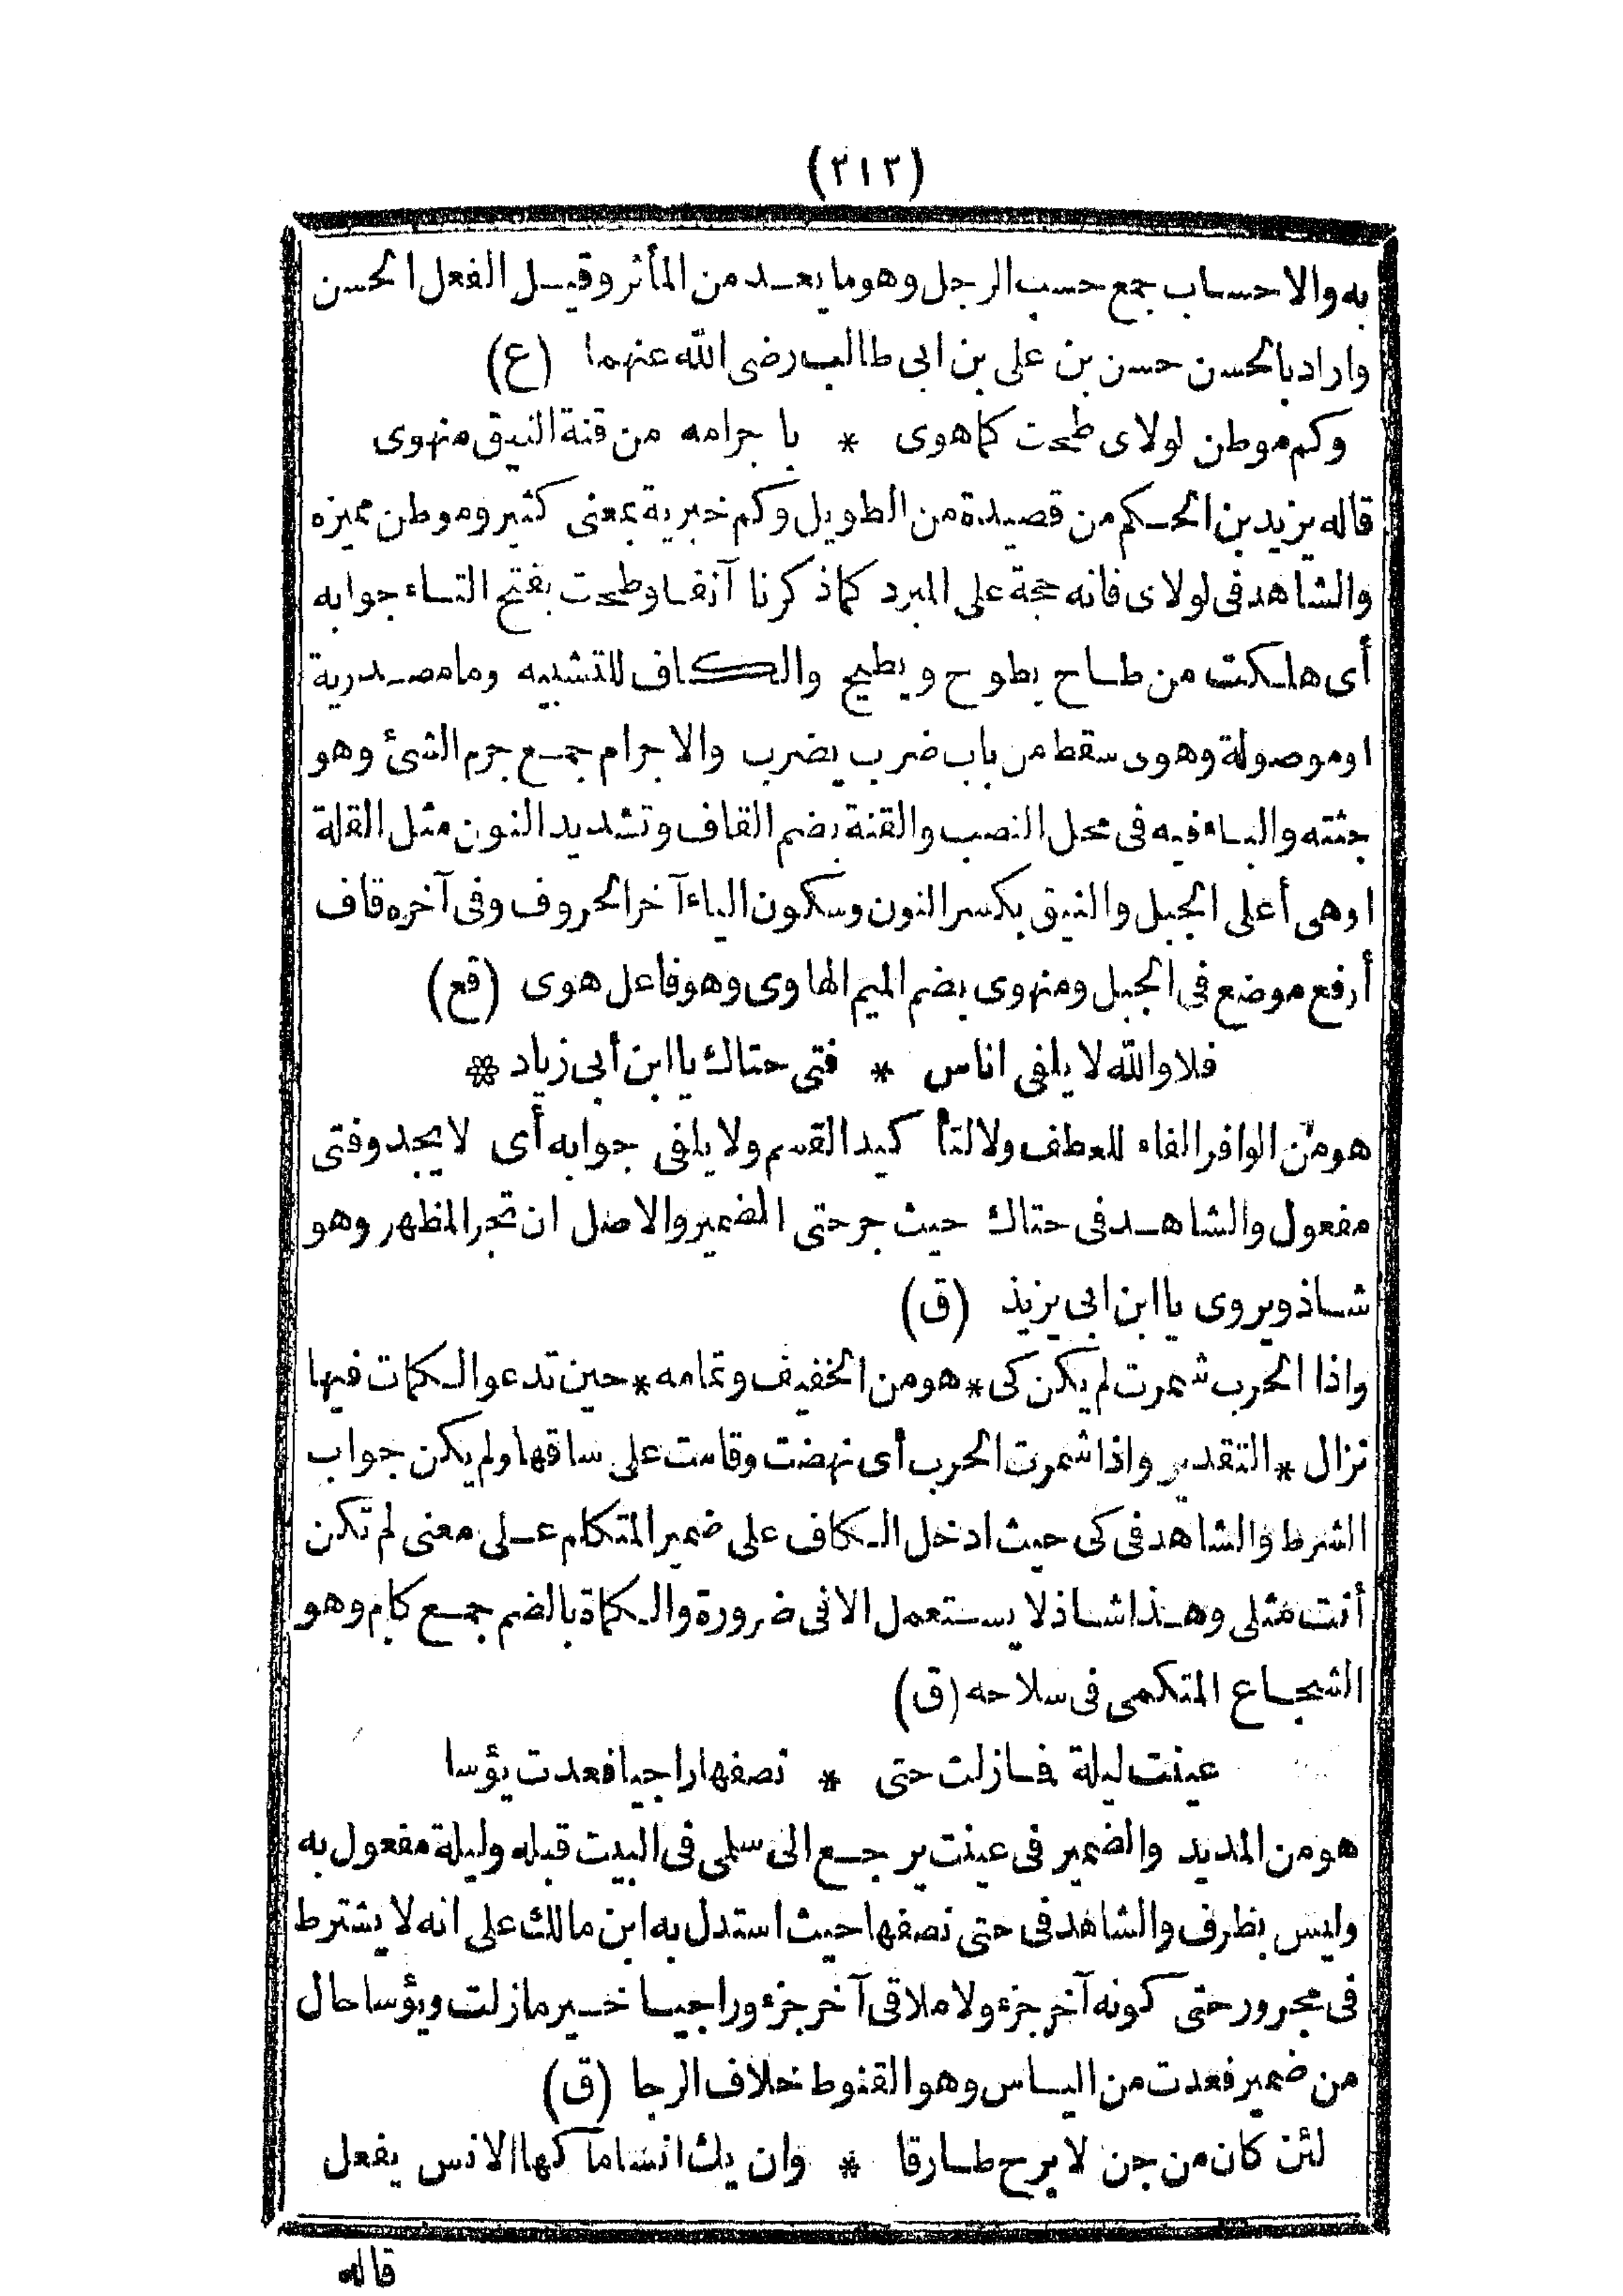 (٢١٢)
به والاحساب جمع حسب الرجل وهو ما يعد من المأثر وقيل الفعل الحسن
واراد بالحسن حسن بن على بن ابى طالب رضى الله عنهما (ع)
وكم موطن لولاى طحت كما هوى * باجرامه من قنة النيق منهوى
قاله يزيد بن الحكم من قصيدة من الطويل وكم خبرية بمعنى كثير وموطن مميزه
والشاهد فى لولاى فانه حجة على المبرد كما ذكرنا آنفا وطحت بفتح التاء جوابه
أى هلكت من طاح يطوح ويطيح والكاف للتشبيه وما مصدرية
اوموصولة وهوى سقط من باب ضرب يضرب والاجرام جمع جرم الشئ وهو
جثته والباء فيه فى محل النصب والقنة بضم القاف وتشديد النون مثل القلة
اوهى أعلى الجبل والنيق بكسر النون وسكون الياء آخر الحروف وفى آخره قاف
أرفع موضع فى الجبل ومنهوى بضم الميم الهاوى وهو فاعل هوى (قع)
فلا والله لا يلفى اناس * فتى حتاك يا ابن أبى زياد *
هو من الوافر الفاء للعطف ولا لتأكيد القسم ولا يلفى جوابه أى لا يجد وفتى
مفعول والشاهد فى حتاك حيث جر حتى الضمير والاصل ان تجر المظهر وهو
شاذ ويروى يا ابن ابى يزيذ (ق)
واذا الحرب شمرت لم يكن كى * هو من الخفيف وتمامه * حين تدعو الكمات فيها
نزال * التقدير واذا شمرت الحرب أى نهضت وقامت على ساقها ولم يكن جواب
الشرط والشاهد فى كى حيث ادخل الكاف على ضمير المتكلم على معنى لم تكن
أنت مثلى وهذا شاذ لا يستعمل الا فى ضرورة والكماة بالضم جمع كام وهو
الشجاع المتكمى فى سلاحه (ق)
عينت ليلة فمازلت حتى * نصفها راجيا فعدت يؤسا
هو من المديد والضمير فى عينت يرجع الى سلمى فى البيت قبله وليلة مفعول به
وليس بظرف والشاهد فى حتى نصفها حيث استدل به ابن مالك على انه لا يشترط
فى مجرور حتى كونه آخر جزء ولا ملاقى آخر جزء وراجيا خبر مازلت ويؤسا حال
من ضمير فعدت من الياس وهو القنوط خلاف الرجا (ق)
لئن كان من جن لابرح طارقا * وان يك انسا ما كها الانس يفعل
قاله